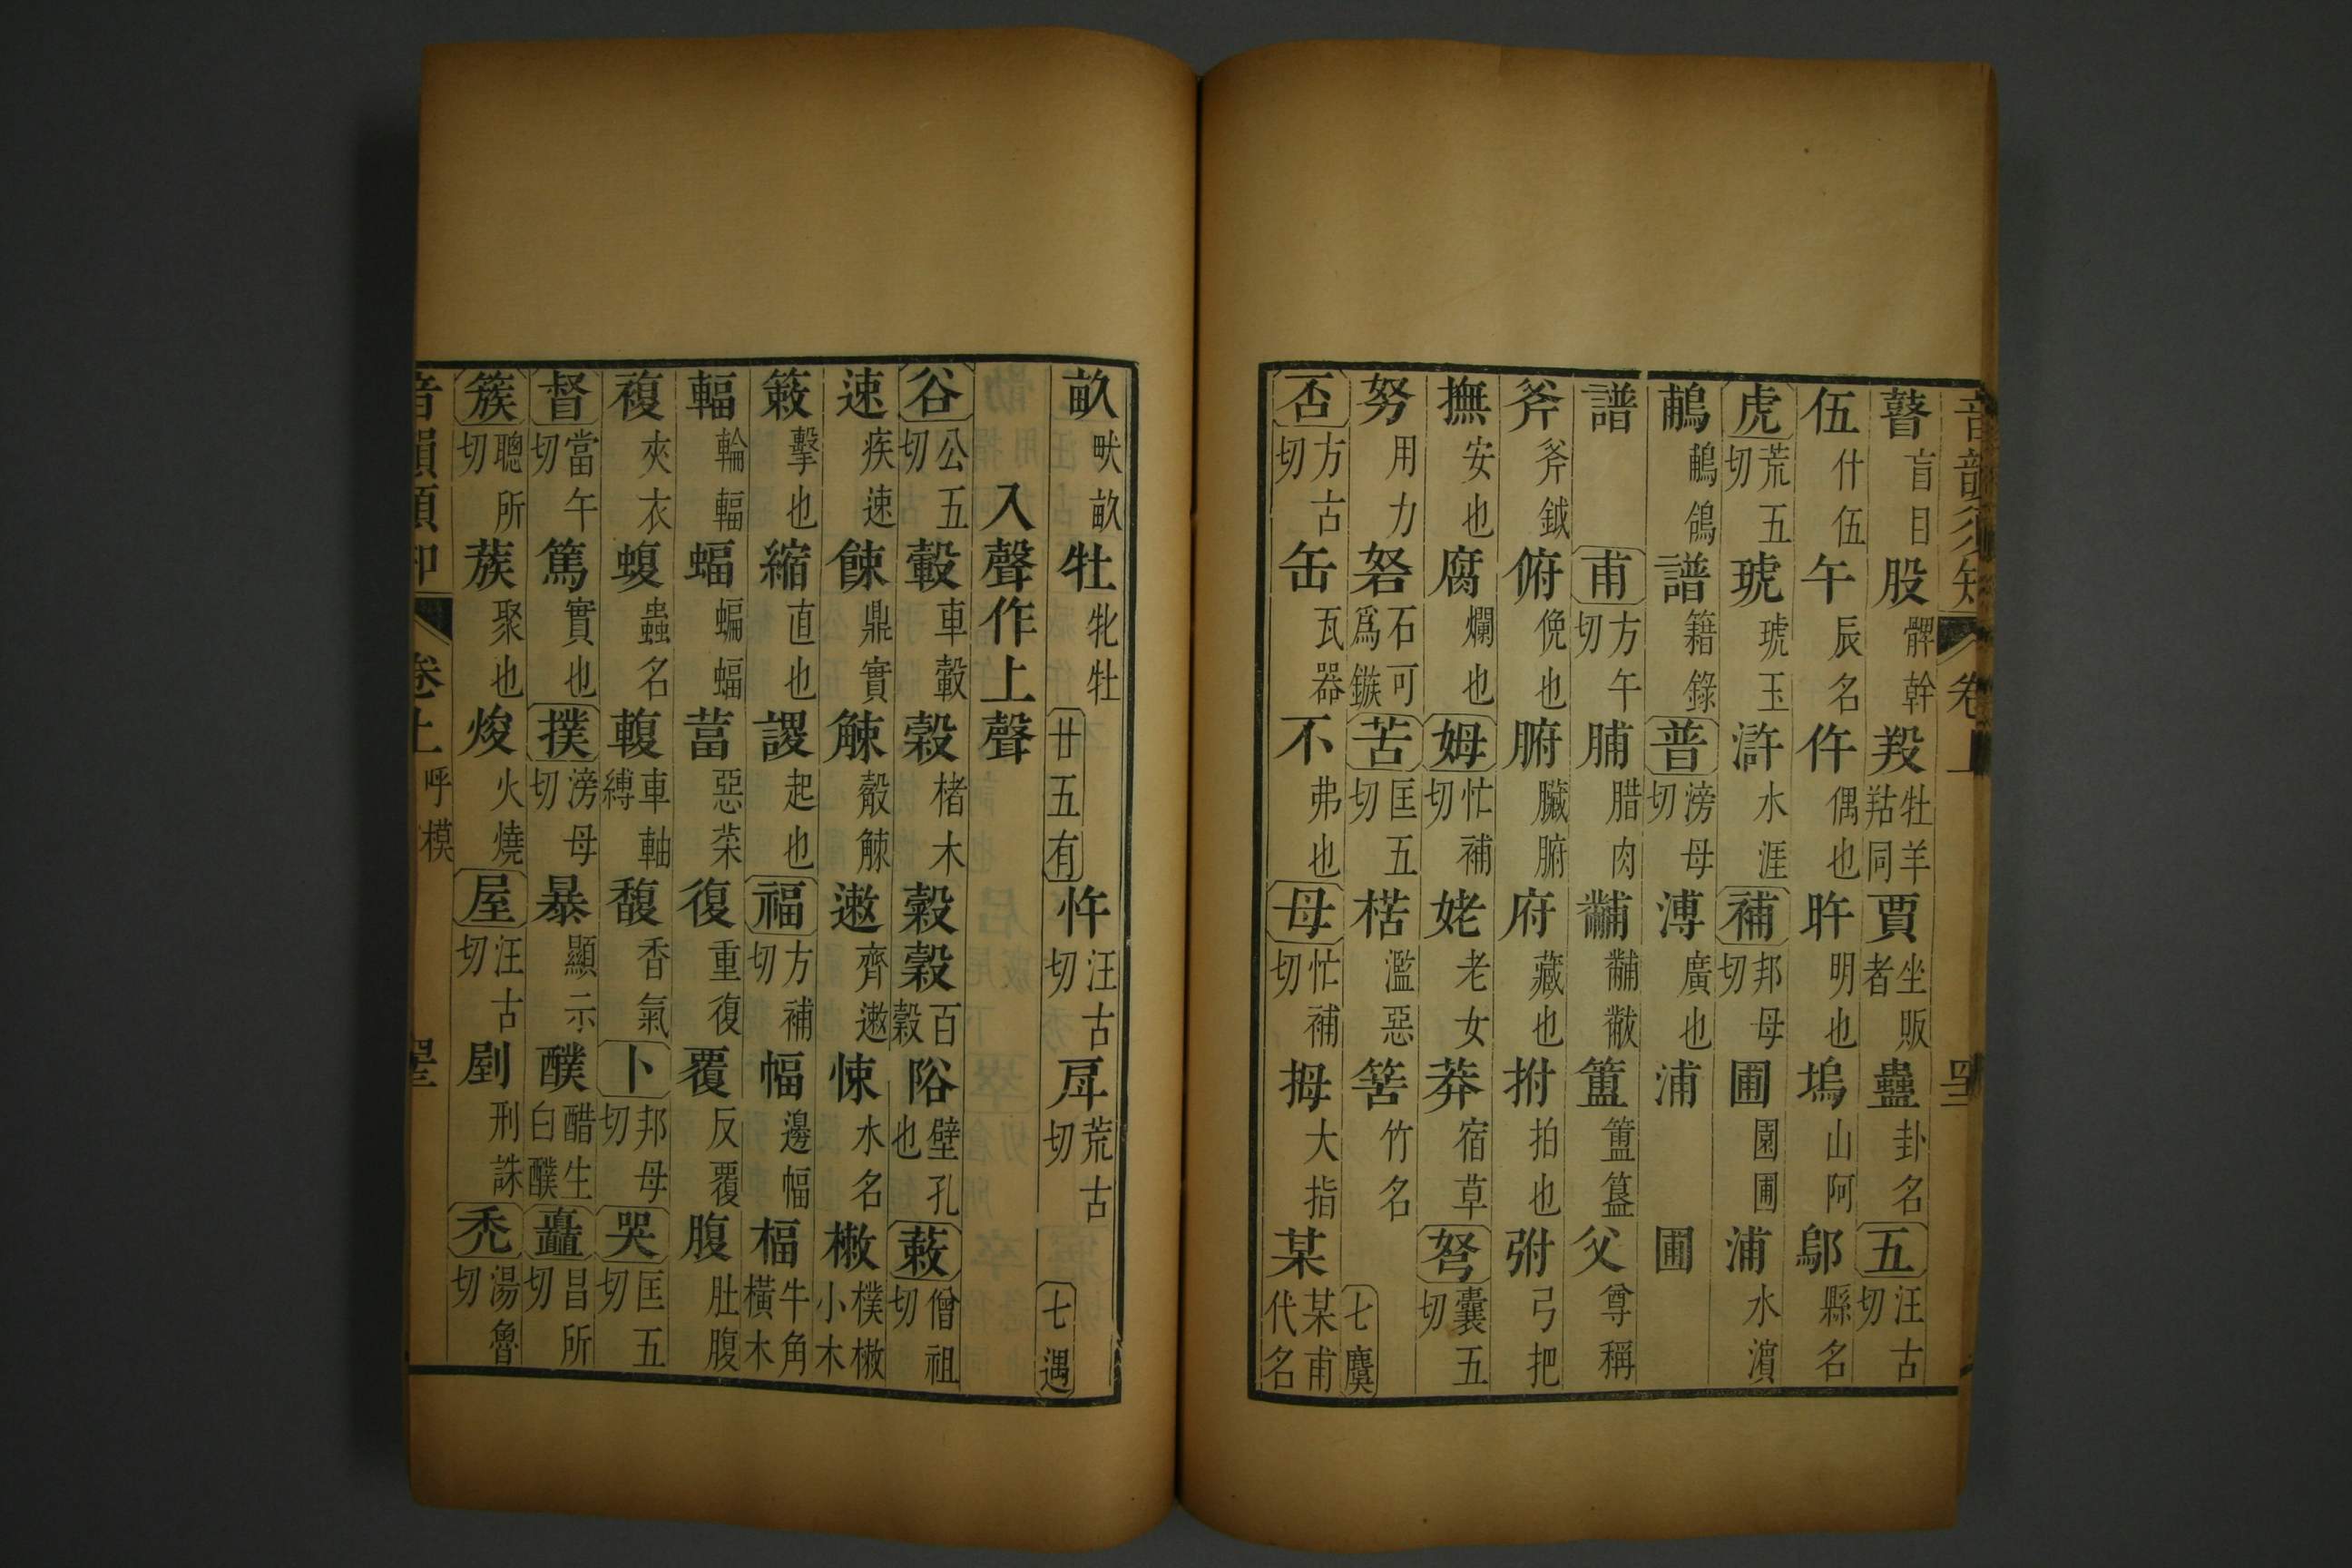 音韻須知 卷上
瞽盲目 股髀幹 羖牡羊羖同 賈坐販者 蠱卦名 五汪古切
伍什伍 午辰名 仵偶也 旿明也 塢山阿 鄔縣名
虎荒五切 琥琥玉 滸水涯 補邦母切 圃園圃 浦水濵
鵏鵏鴿 譜籍錄 普滂母切 溥廣也 浦 圃
譜 甫方午切 脯腊肉 黼黼黻 簠簠簋 父尊稱
斧斧鉞 俯俛也 腑臟腑 府藏也 拊拍也 弣弓把
撫安也 腐爛也 姆忙補切 姥老女 莽宿草 弩囊五切
努用力 砮石可爲鏃 苦匡五切 楛濫惡 筶竹名 七麌
否方古切 缶瓦器 不弗也 母忙補切 拇大指 某某甫代名
畝畎畝 牡牝牡 廿五有 忤汪古切 戽荒古切 七遇
入聲作上聲
谷公五切 轂車轂 榖楮木 穀 穀百穀 𧮫壁孔也 蔌僧祖切
速疾速 餗鼎實 觫觳觫 遬齊遬 涑水名 樕樸樕小木
簌擊也 縮直也 謖起也 福方補切 幅邊幅 楅牛角橫木
輻輪輻 蝠蝙蝠 葍惡菜 復重復 覆反覆 腹肚腹
複夾衣 蝮蟲名 輹車軸縛 馥香氣 卜邦母切 哭匡五切
督當午切 篤實也 撲滂母切 暴顯示 醭醋生白醭 矗昌所切
簇聰所切 蔟聚也 焌火燒 屋汪古切 剭刑誅 禿湯魯切
音韻須知 卷上 呼模